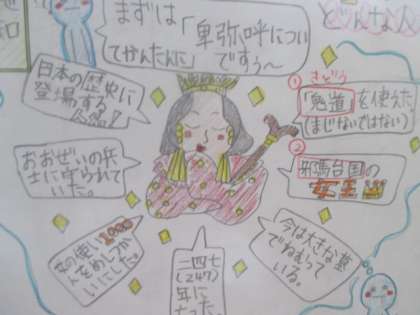 まずは
「卑弥呼につい
てかんたんに」
ですぅ〜
どんな人
知
日本の歴史に
登場する
おおぜいの兵
士に守られて
いた。
女の使い1000
人をめしつか
いにした。
二四七
(247)
年に
「今は大きな墓
でねむって
いる。
① きどう
「鬼道」を使えた
(まじないではない)
②
邪馬台国の
女王